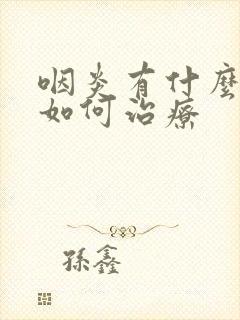 咽炎有什麼
如何治療
孫鑫